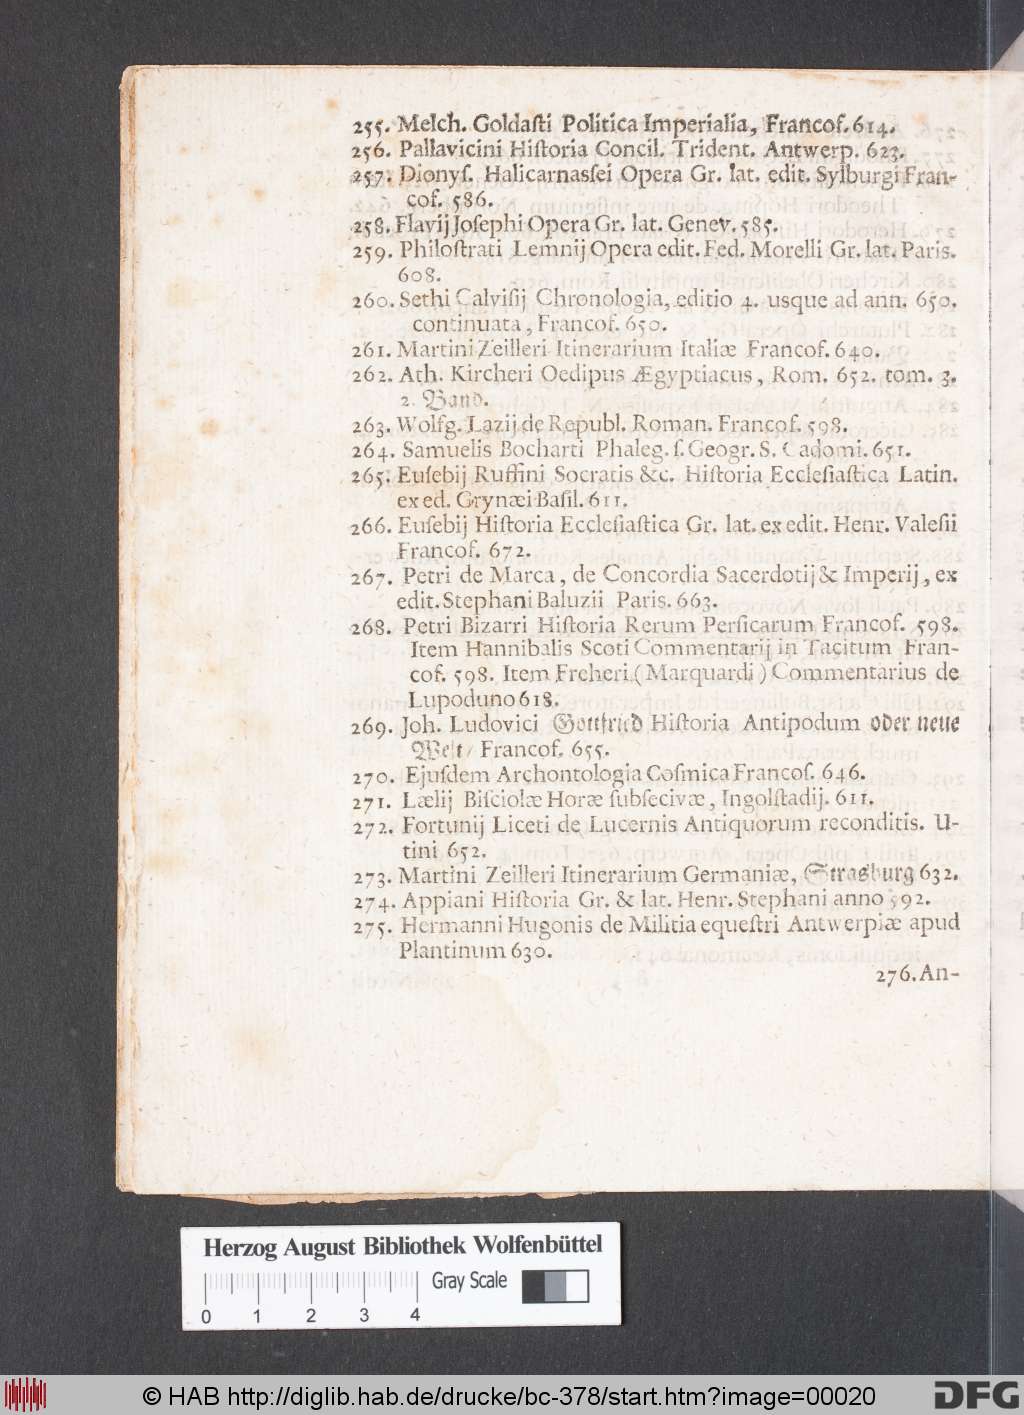 255. Melch. Goldaſti Politica Imperialia, Francof. 614.
256. Pallavicini Hiſtoria Concil. Trident. Antwerp. 623.
257. Dionyſ. Halicarnaſſei Opera Gr. lat. edit. Sylburgi Fran-
cof. 586.
258. Flavij Joſephi Opera Gr. lat. Genev. 585.
259. Philoſtrati Lemnij Opera edit. Fed. Morelli Gr. lat. Paris.
608.
260. Sethi Calviſij Chronologia, editio 4. usque ad ann. 650.
continuata, Francof. 650.
261. Martini Zeilleri Itinerarium Italiæ Francof. 640.
262. Ath. Kircheri Oedipus Ægyptiacus, Rom. 652. tom. 3.
2. Band.
263. Wolfg. Lazij de Republ. Roman. Francof. 598.
264. Samuelis Bocharti Phaleg. ſ. Geogr. S. Cadomi. 651.
265. Euſebij Ruffini Socratis &c. Hiſtoria Eccleſiaſtica Latin.
ex ed. Grynæi Baſil. 611.
266. Euſebij Hiſtoria Eccleſiaſtica Gr. lat. ex edit. Henr. Valeſii
Francof. 672.
267. Petri de Marca, de Concordia Sacerdotij & Imperij, ex
edit. Stephani Baluzii Paris. 663.
268. Petri Bizarri Hiſtoria Rerum Perſicarum Francof. 598.
Item Hannibalis Scoti Commentarij in Tacitum Fran-
cof. 598. Item Freheri (Marquardi) Commentarius de
Lupoduno 618.
269. Joh. Ludovici Gottfried Hiſtoria Antipodum oder neue
Welt / Francof. 655.
270. Ejuſdem Archontologia Coſmica Francof. 646.
271. Lælij Biſciolæ Horæ ſubſecivæ, Ingolſtadij. 611.
272. Fortunij Liceti de Lucernis Antiquorum reconditis. U-
tini 652.
273. Martini Zeilleri Itinerarium Germaniæ, Strasburg 632.
274. Appiani Hiſtoria Gr. & lat. Henr. Stephani anno 592.
275. Hermanni Hugonis de Militia equeſtri Antwerpiæ apud
Plantinum 630.
276. An-
Herzog August Bibliothek Wolfenbüttel
Gray Scale
0 1 2 3 4
© HAB http://diglib.hab.de/drucke/bc-378/start.htm?image=00020
DFG